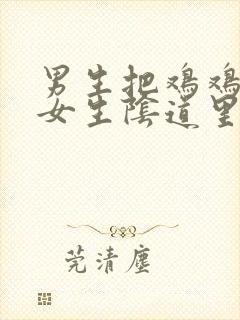 男生把鸡鸡
女生陰道里
莞清塵